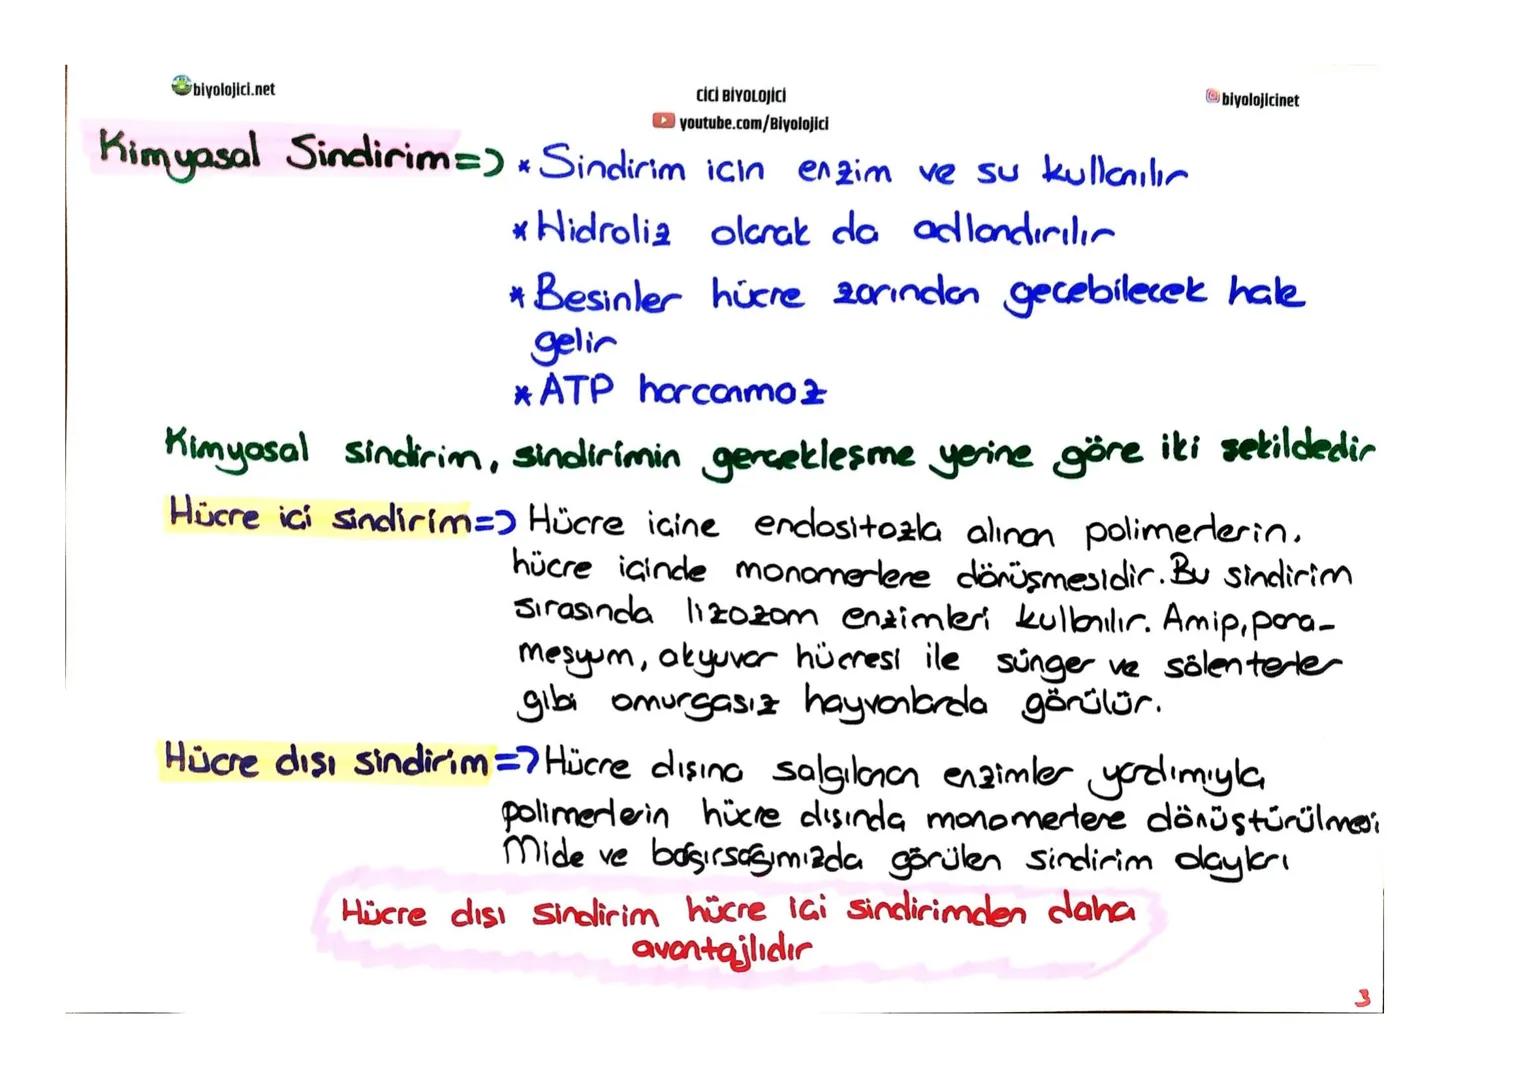 biyolojici.net
CİCİ BİYOLOJİCİ
youtube.com/Biyolojici
biyolojicinet
Kimyasal Sindirim=> * Sindirim icin enzim ve su kullanılır
* Hidroliz olarak da adlandırılır
* Besinler hücre zarından gecebilecek hale
gelir
* ATP harcanmaz
Kimyasal sindirim, sindirimin gercekleşme yerine göre iki şekildedir
Hücre içi sindirim=> Hücre içine endositozla alınan polimerlerin,
hücre içinde monomerlere dönüşmesidir. Bu sindirim
sırasında lizozom enzimleri kullanılır. Amip, para-
mesyum, akyuvar hücresi ile sünger ve sölenterler
gibi omurgasız hayvanlarda görülür.
Hücre dışı sindirim=> Hücre dışına salgılanan enzimler yardımıyla
polimerlerin hücre dışında monomerlere dönüştürülmesi
Mide ve bağırsağımızda görülen sindirim olayları
Hücre dışı sindirim hücre içi sindirimden daha
avantajlıdır
3